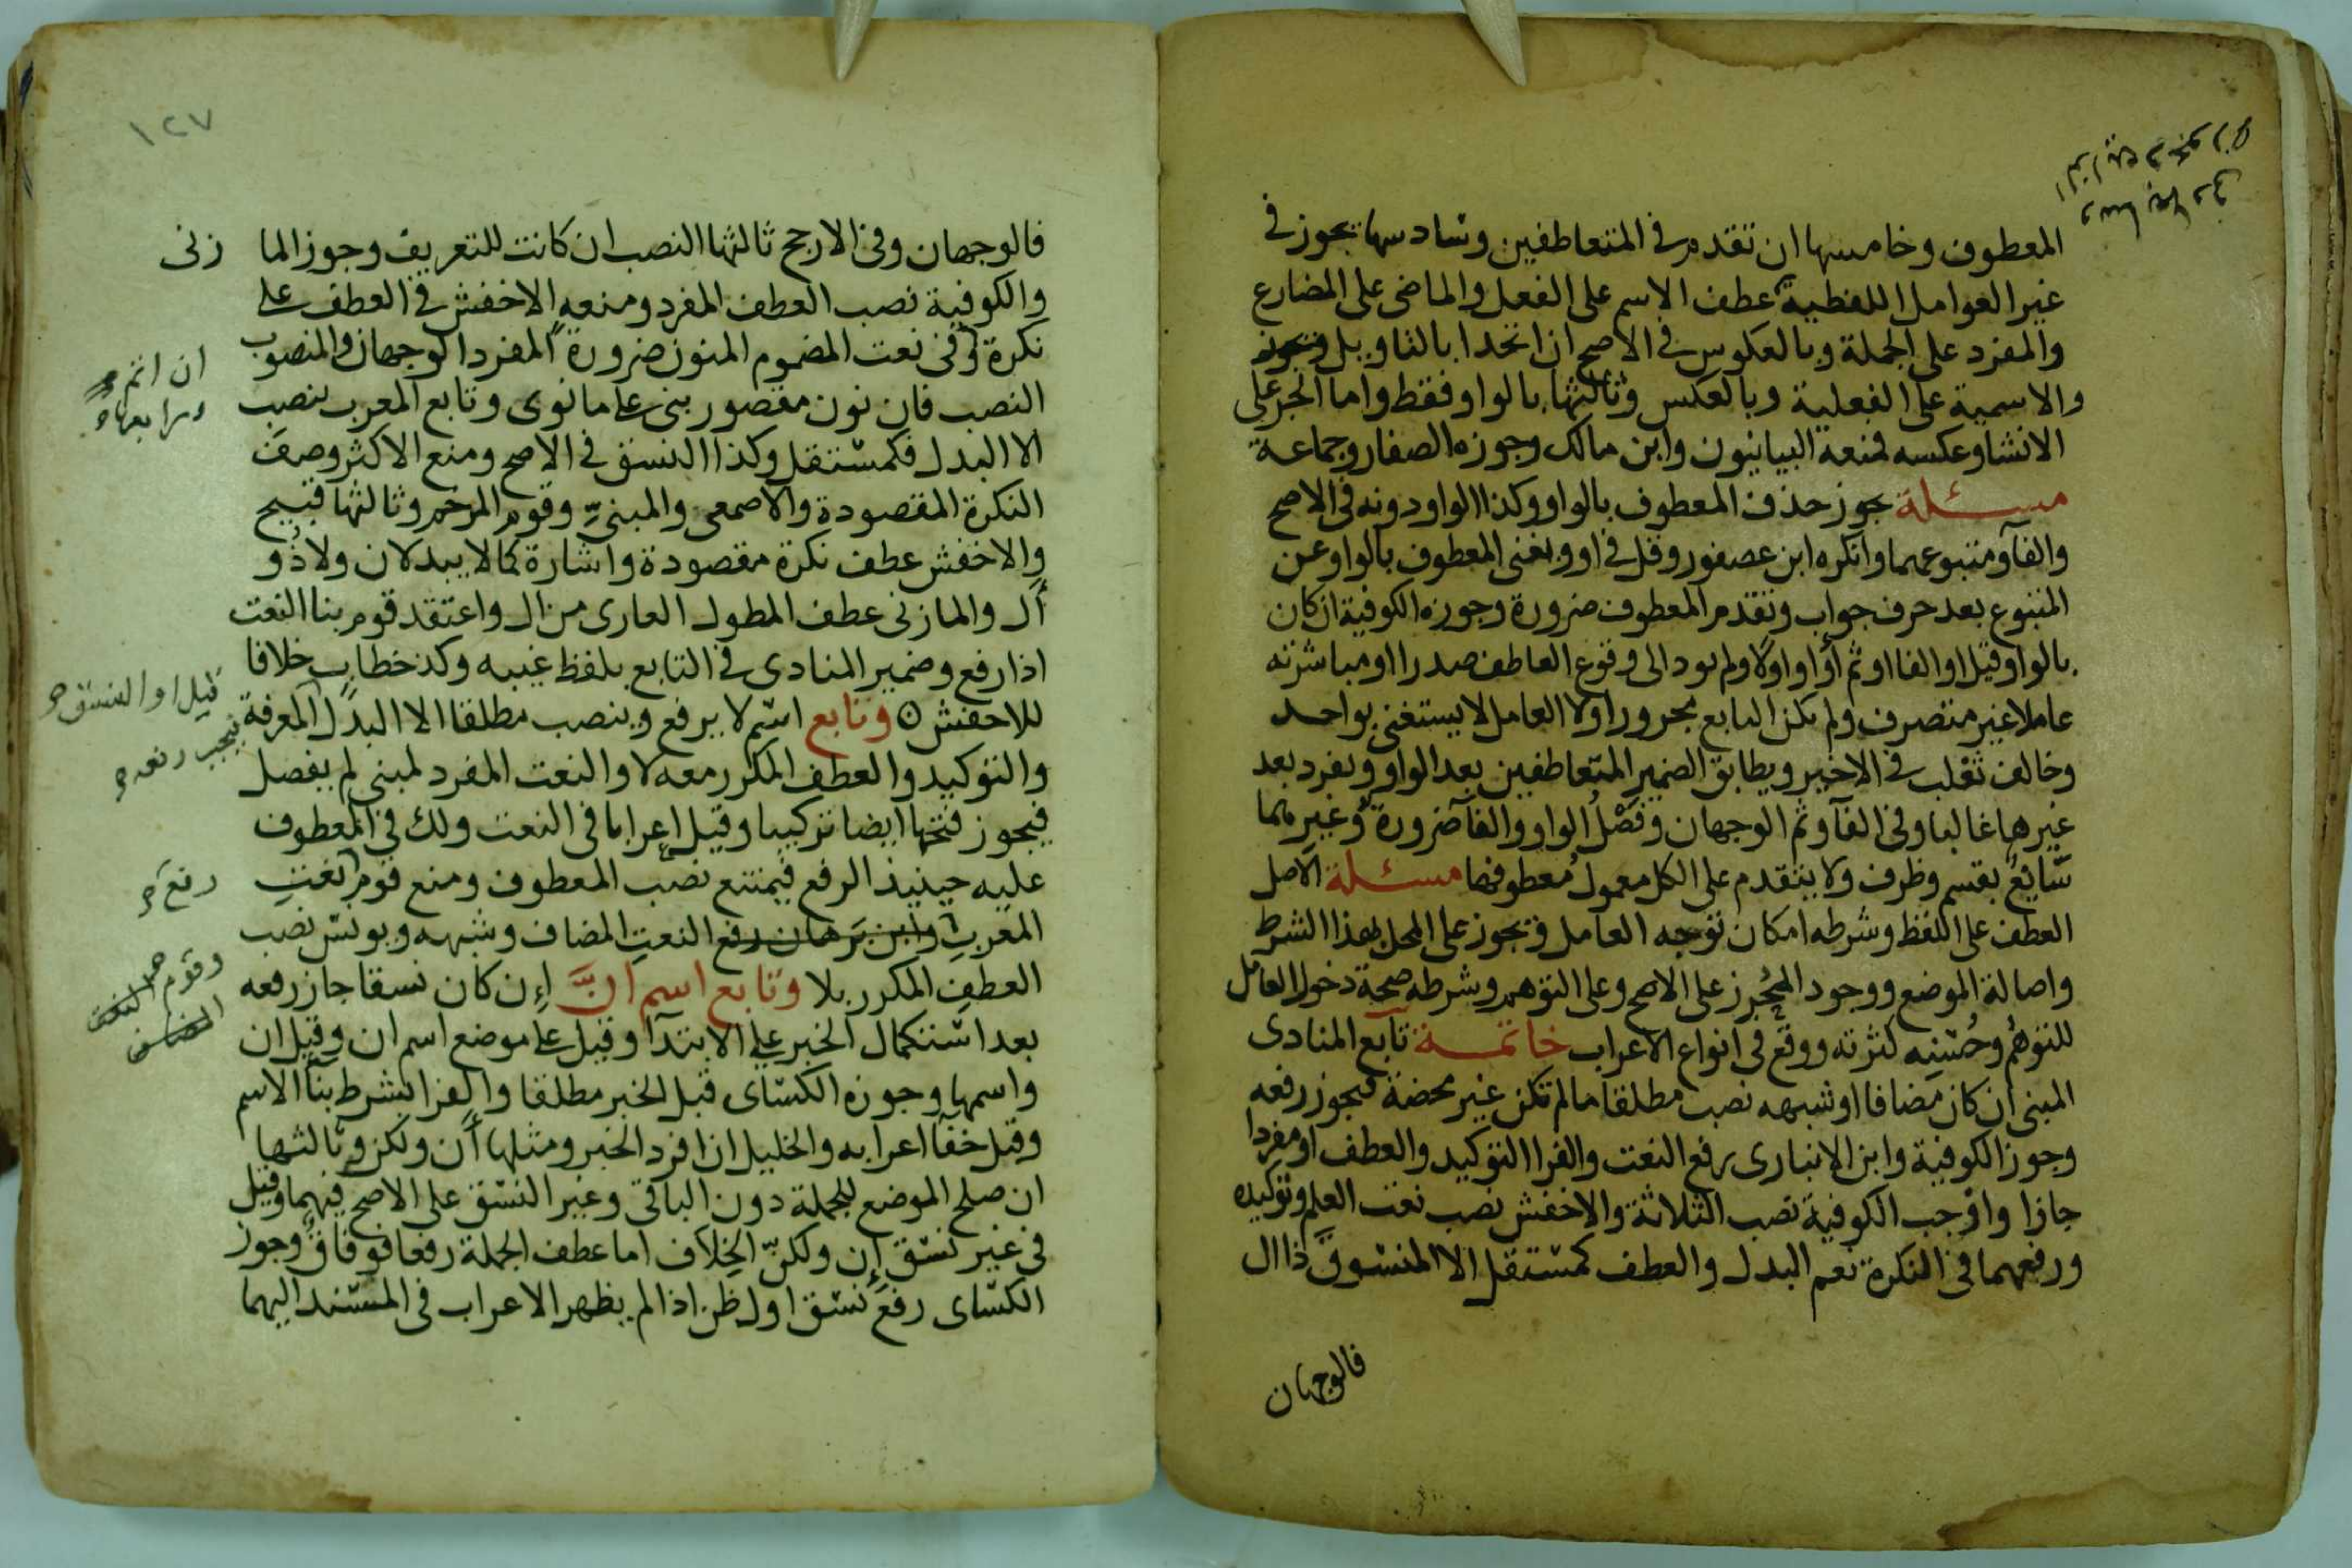 المعطوف وخامسها ان تقدم في المتعاطفين وسادسها يجوز في
غير العوامل اللفظية عطف الاسم على الفعل والماضى على المضارع
والمفرد على الجملة وبالعكوس في الاصح ان اتحدا بالتاويل
والاسمية على الفعلية وبالعكس وثالثها بالواو فقط واما الخبر على
الانشا وعكسه فمنعه البيانيون وابن مالك وجوزه الصفار وجماعة
مسئلة يجوز حذف المعطوف بالواو وكذا الواو دونه في الاصح
والفآ ومتبوعهما وانكره ابن عصفور وقل في او ويغنى المعطوف بالواو عن
المتبوع بعد حرف جواب وتقدم المعطوف ضرورة وجوزه الكوفية ان كان
بالواو قيل او الفا او ثم او او اولا ولم يود الى وقوع العاطف صدرا او مباشرته
عاملا غير متصرف ولم يكن التابع مجرورا ولا العامل لا يستغنى بواحد
وخالف ثعلب في الاخير ويطابق الضمير المتعاطفين بعد الواو ويفرد بعد
غيرها غالبا وفي الفآ وثم الوجهان وفصل الواو والفآ ضرورة وغيرهما
سايغ بقسم وظرف ولا يتقدم على الكل معمول معطوفها مسئلة الاصل
العطف على اللفظ وشرطه امكان توجه العامل ويجوز على المحل بهذا الشرط
واصالة الموضع ووجود المحرز على الاصح وعلى التوهم وشرطه صحة دخول العامل
للتوهم وحسنه كثرته ووقع في انواع الاعراب خاتمة تابع المنادى
المبنى ان كان مضافا او شبهه نصب مطلقا ما لم تكن غير محضة فيجوز رفعه
وجوز الكوفية وابن الانبارى رفع النعت والفرا التوكيد والعطف او مفردا
جازا واوجب الكوفية نصب الثلاثة والاخفش نصب نعت العلم وتوكيده
ورفعهما في النكرة نعم البدل والعطف كمستقل الا المنسوق ذا ال
فالوجهان
١٢٧
فالوجهان وفي الارجح ثالثها النصب ان كانت للتعريف وجوز الما زنى
والكوفية نصب العطف المفرد ومنعه الاخفش في العطف على
نكرة وفي نعت المضموم المنون ضرورة المفرد الوجهان والمنصوب
النصب فان نون مقصور بنى على ما نوى وتابع المعرب بنصب
الا البدل فكمستقل وكذا النسق في الاصح ومنع الاكثر وصف
النكرة المقصودة والاصمعى والمبنى وقوم المرخم وثالثها قبيح
والاخفش عطف نكرة مقصودة واشارة كما لا يبدلان ولا ذو
ال والمازنى عطف المطول العارى من ال واعتقد قوم بنا النعت
اذا رفع وضمير المنادى في التابع بلفظ غيبه وكذ خطاب خلافا
للاخفش وتابع اسم لا يرفع وينصب مطلقا الا البدل المعرفة
قيل او النسق
فيجب رفعه
والتوكيد والعطف المكرر معه لا والنعت المفرد لمبنى لم يفصل
فيجوز فتحها ايضا تركيبا وقيل اعرابا في النعت ولك في المعطوف
عليه حينيذ الرفع فيمتنع نصب المعطوف ومنع قوم نعت
رفع
المعرب وابن برهان رفع النعت المضاف وشبهه ويونس نصب
العطف المكرر بلا وتابع اسم ان إن كان نسقا جاز رفعه
بعد استكمال الخبر على الابتدآ وقيل على موضع اسم ان وقيل ان
واسمها وجوزه الكساى قبل الخبر مطلقا والفرا بشرط بنا الاسم
وقيل خفآ اعرابه والخليل ان افرد الخبر ومثلها أن ولكن وثالثها
ان صلح الموضع للجملة دون الباقى وغير النسق على الاصح فيهما وقيل
في غير نسق إن ولكنّ الخلاف اما عطف الجملة رفعا فوفاق وجوز
الكساى رفع نسق اول ظن اذا لم يظهر الاعراب في المسند اليهما